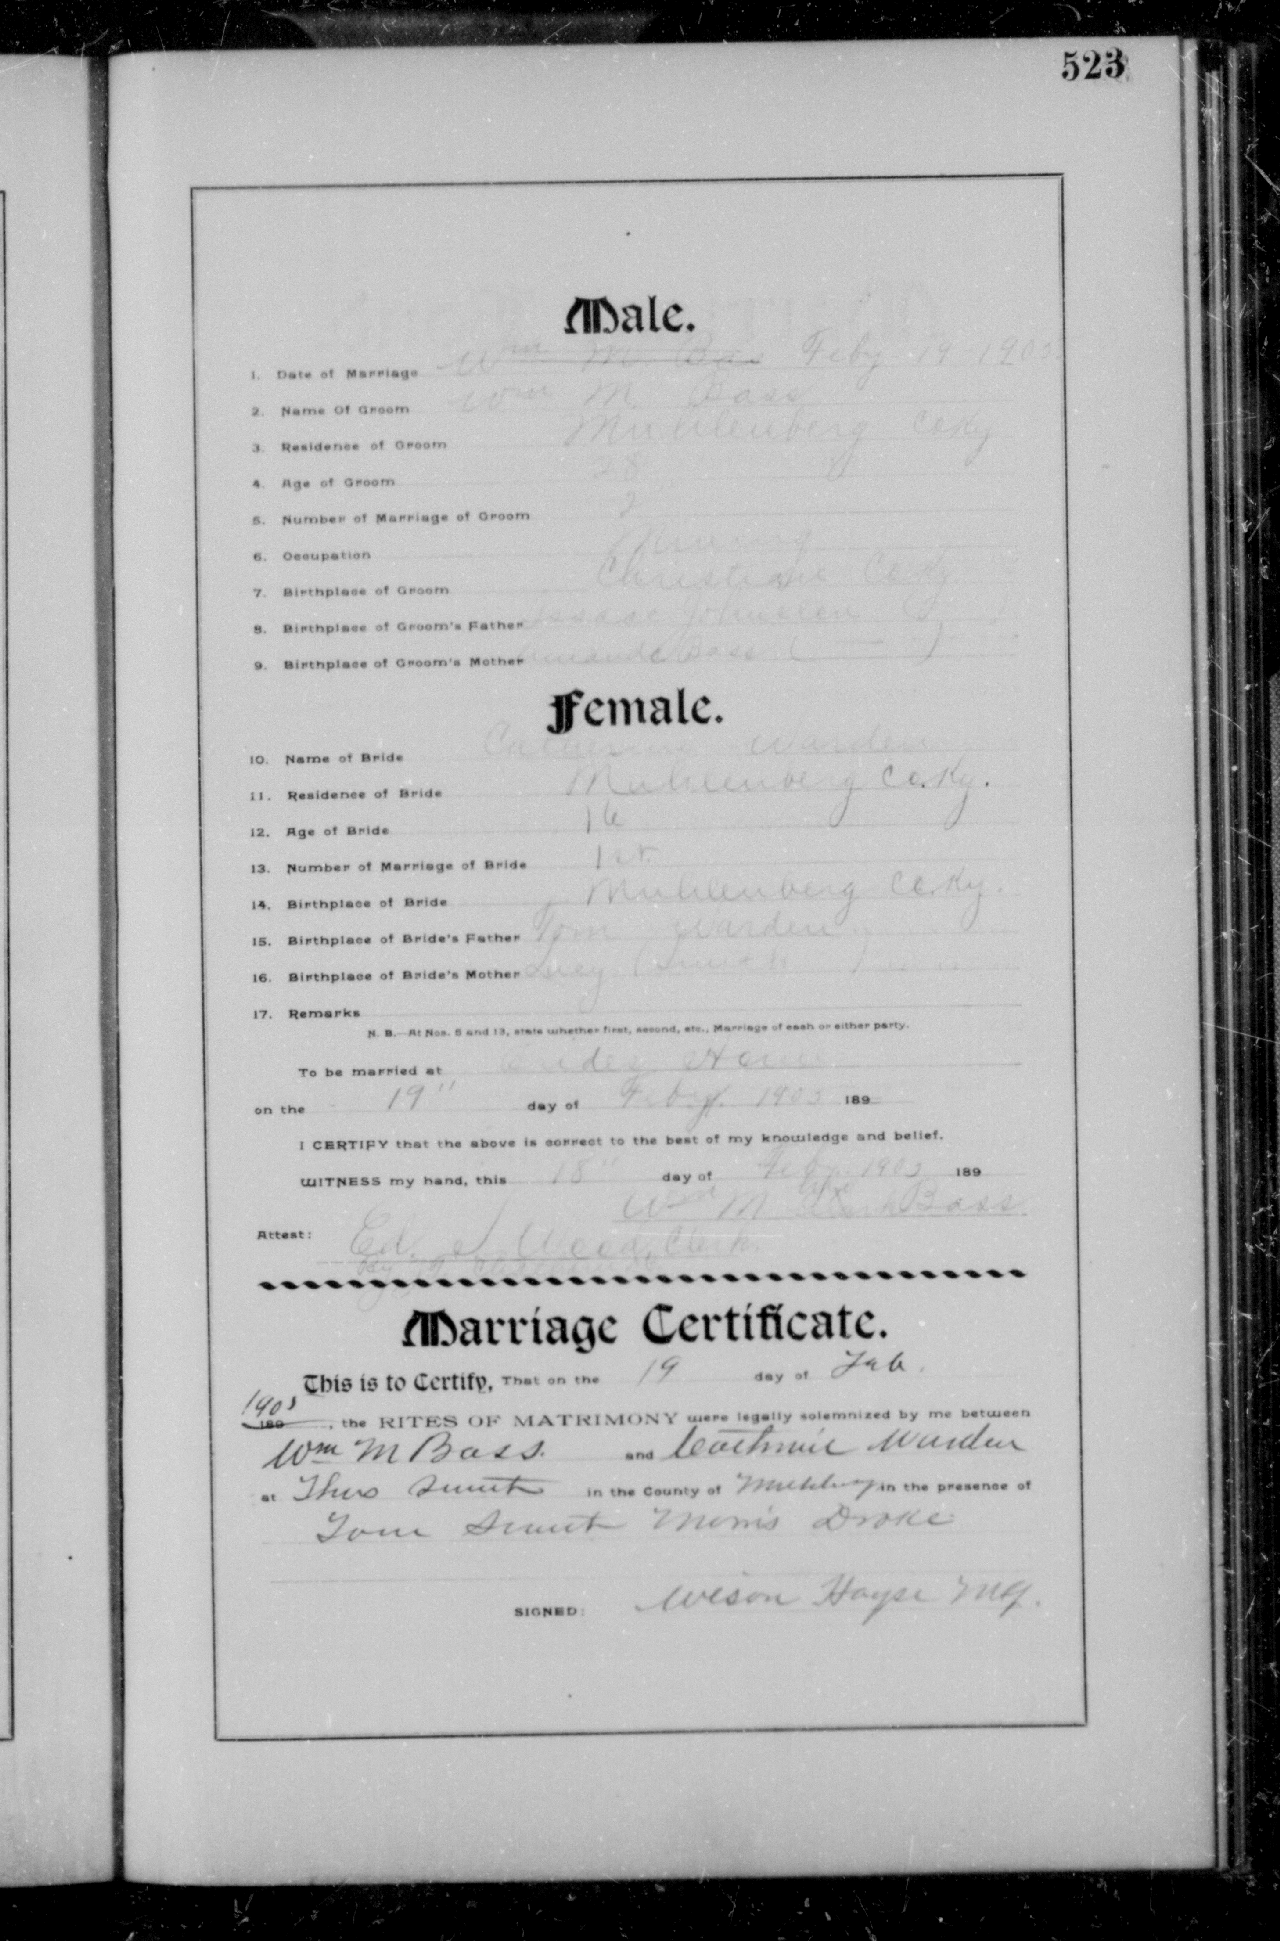 523
Male.
1. Date of Marriage Wm M. Bas Feby 19 1903
2. Name Of Groom Wm M Bass
3. Residence of Groom Muhlenberg Co Ky
4. Age of Groom 28
5. Number of Marriage of Groom 2
6. Occupation
7. Birthplace of Groom Christian Co Ky
8. Birthplace of Groom's Father Isaac
9. Birthplace of Groom's Mother Amanda Bass
Female.
10. Name of Bride Catherine Warden
11. Residence of Bride Muhlenberg Co. Ky.
12. Age of Bride 16
13. Number of Marriage of Bride 1st
14. Birthplace of Bride Muhlenberg Co. Ky.
15. Birthplace of Bride's Father Tom Warden
16. Birthplace of Bride's Mother Lucy
17. Remarks
N. B.—At Nos. 5 and 13, state whether first, second, etc., Marriage of each or either party.
To be married at
on the 19" day of Feby. 1903 189
I CERTIFY that the above is correct to the best of my knowledge and belief.
WITNESS my hand, this 18" day of Feby. 1903 189
Wm M Bass
Attest: Ed. Wood, Clerk
Marriage Certificate.
This is to Certify, That on the 19 day of Feb.
1903 189 , the RITES OF MATRIMONY were legally solemnized by me between
Wm M Bass. and Warden
at Thos in the County of in the presence of
Tom Morris Drake
SIGNED: